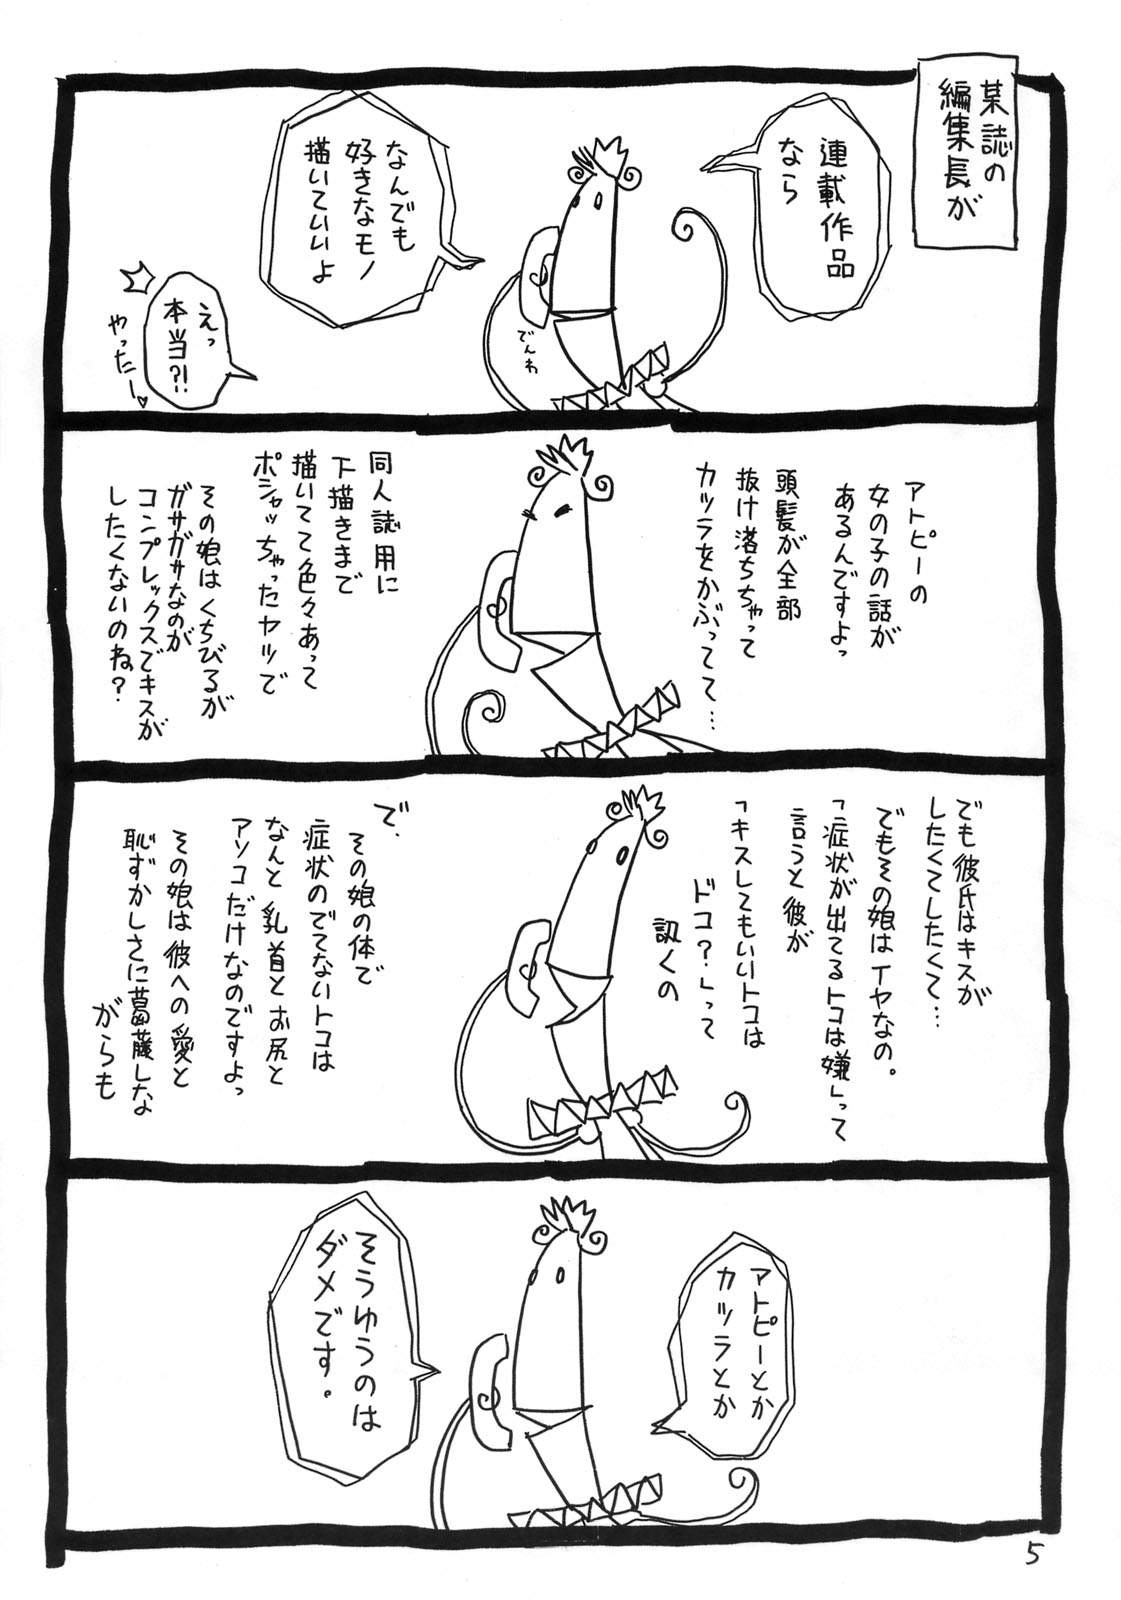 某誌の
編集長が
連載作品
なら
でんわ
なんでも
好きなモノ
描いていいよ
えっ
本当?!
やったー♡
アトピーの
女の子の話が
あるんですよっ
頭髪が全部
抜け落ちちゃって
カツラをかぶってて…
同人誌用に
下描きまで
描いてて色々あって
ポシャッちゃったヤツで
その娘はくちびるが
ガサガサなのが
コンプレックスでキスが
したくないのね?
でも彼氏はキスが
したくてしたくて…
でもその娘はイヤなの。
「症状が出てるトコは嫌」って
言うと彼が
「キスしてもいいトコは
ドコ?」って
訊くの
で、
その娘の体で
症状のでてないトコは
なんと乳首とお尻と
アソコだけなのですよっ
その娘は彼への愛と
恥ずかしさに葛藤しな
がらも
アトピーとか
カツラとか
そうゆうのは
ダメです。
5